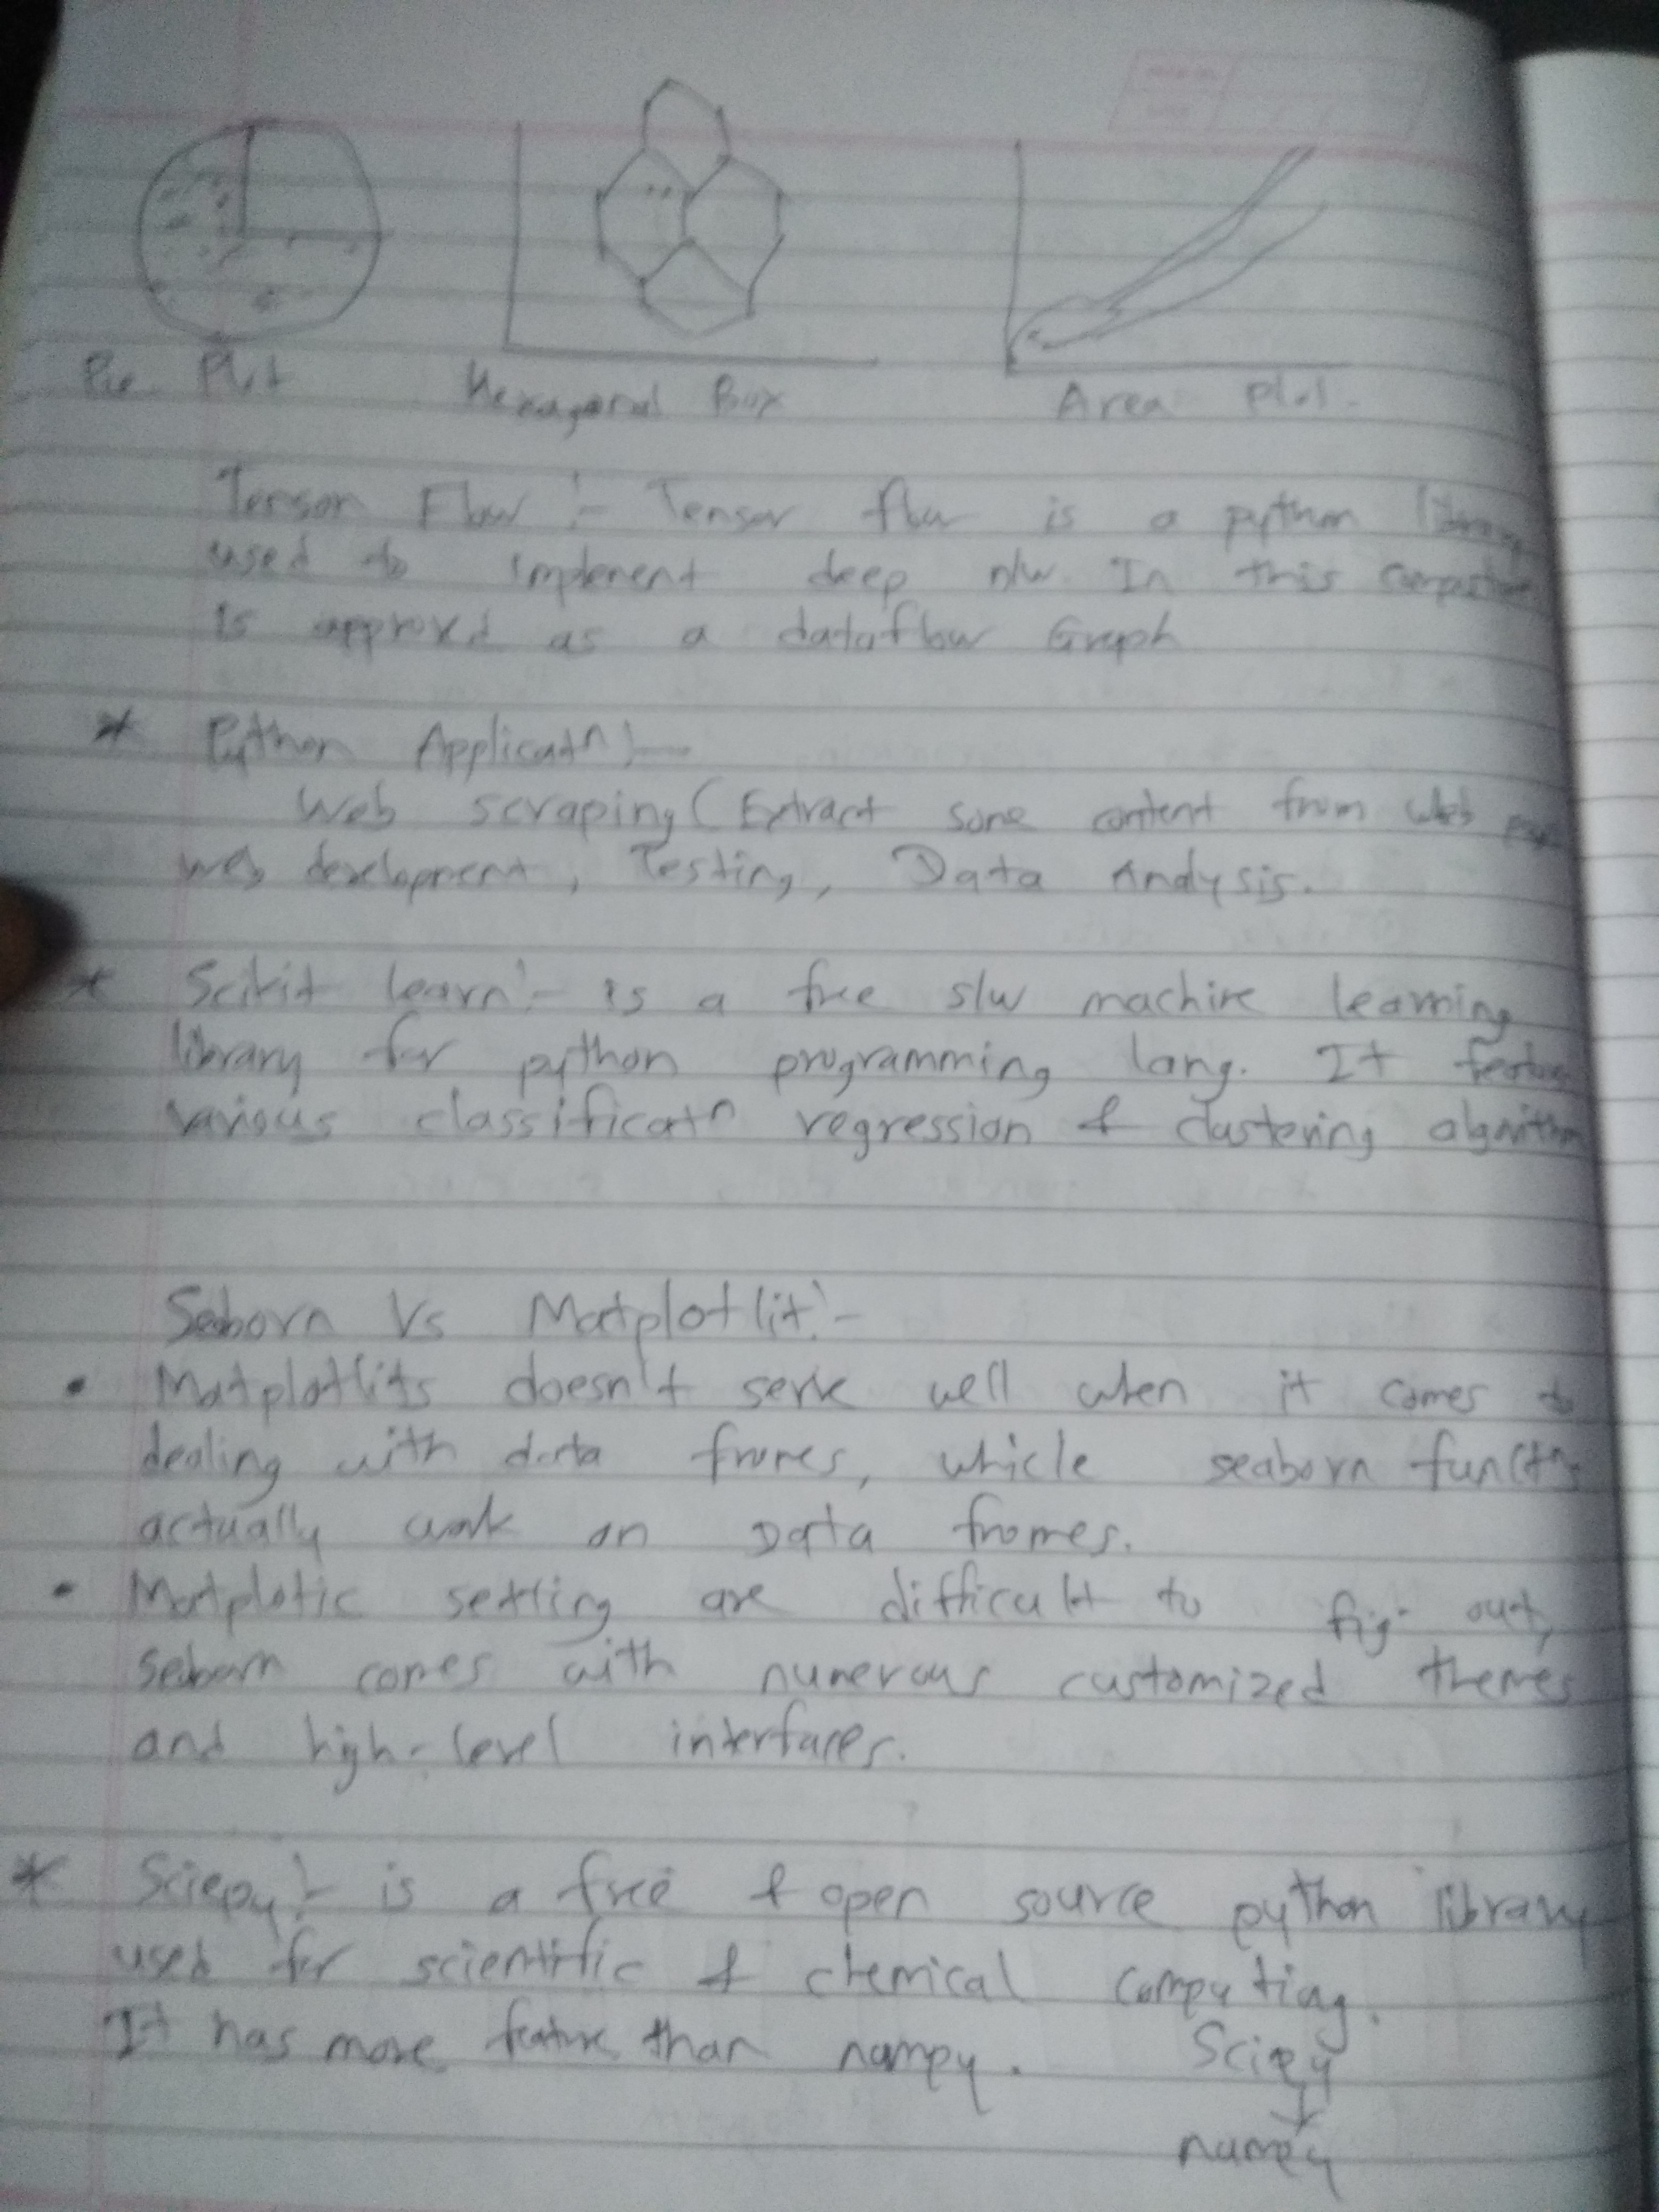 Pie Plot Hexagonal Box Area Plot.
Tensor Flow :- Tensor flow is a python library
used to implement deep n/w. In this
is approxd as a dataflow Graph
* Python Applicatn :-
Web scraping (Extract some content from web
web development, Testing, Data Analysis.
* Scikit learn :- is a free s/w machine learning
library for python programming lang. It
various classificatn regression & clustering algorithm
Seaborn Vs Matplotlit :-
• Matplotlits doesn't serve well when it comes to
dealing with data frames, whicle seaborn functns
actually work on Data frames.
• Matplotic setting are difficult to fig. out,
seaborn comes with numerous customized themes
and high-level interfaces.
* Sciepy :- is a free & open source python library
used for scientific & chemical computing.
It has more feature than numpy. Scipy
↓
numpy